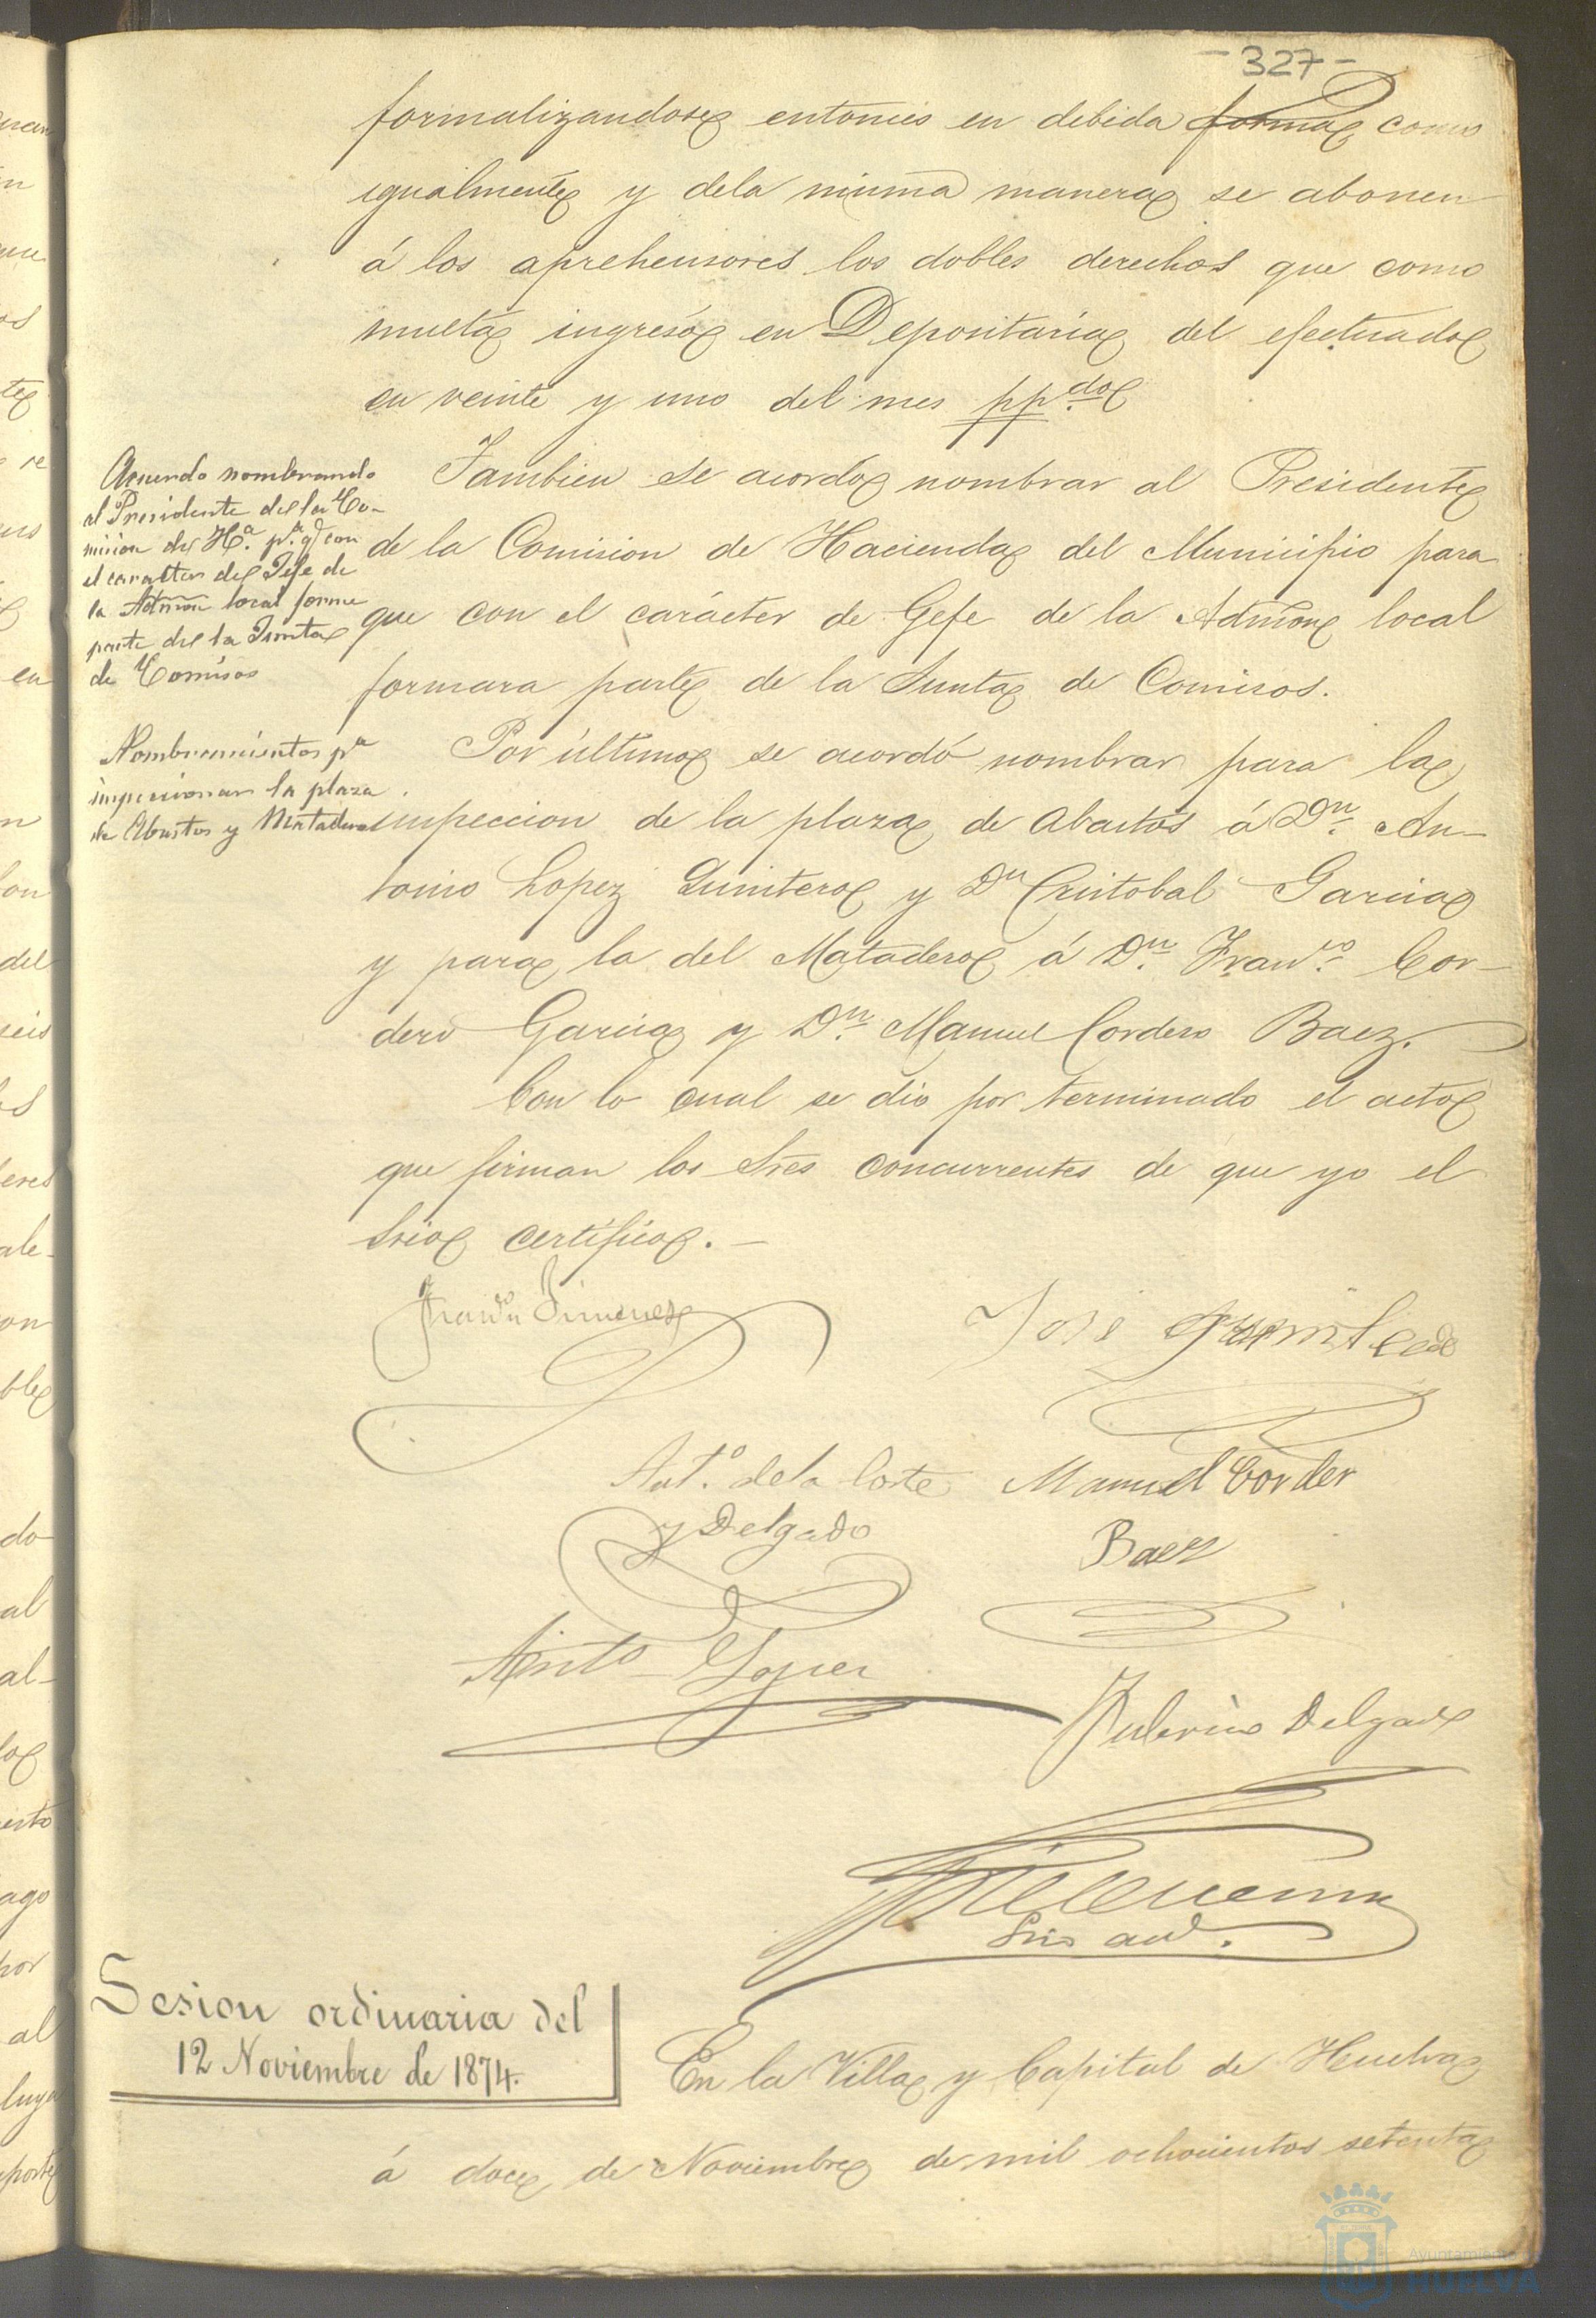 -327-
formalizandose entonces en debida forma como
igualmente y dela misma manera se abonen
á los aprehensores los dobles derechos que como
multa ingresó en Depositaría del efectuado
en veinte y uno del mes pp.do
Acuerdo nombrando
al Presidente de la Co-
mision de H.a p.a q.e con
el caracter de Jefe de
la Admon local forme
parte de la Junta
de Comisos
Tambien se acordó nombrar al Presidente
de la Comision de Hacienda del Municipio para
que con el carácter de Gefe de la Admon local
formara parte de la Junta de Comisos.
Nombramientos pa
inspeccionar la plaza
de Abastos y Matadero
Por último se acordó nombrar para la
inspeccion de la plaza de abastos á Dn. An-
tonio Lopez Quintero y Dn Cristobal Garcia
y para la del Matadero á Dn. Franco. Cor-
dero Garcia y Dn. Manuel Cordero Baez.
Con lo cual se dio por terminado el acto
que firman los Sres concurrentes de que yo el
Srio certifico.-
Jimenez
José
Ant.o dela Corte
y Delgado
Manuel Corder
Baez
Anto Lopez
Federico Delgado
Srio
Sesion ordinaria del
12 Noviembre de 1874.
En la Villa y Capital de Huelva
á doce de Noviembre de mil ochocientos setenta
Ayuntamiento
HUELVA